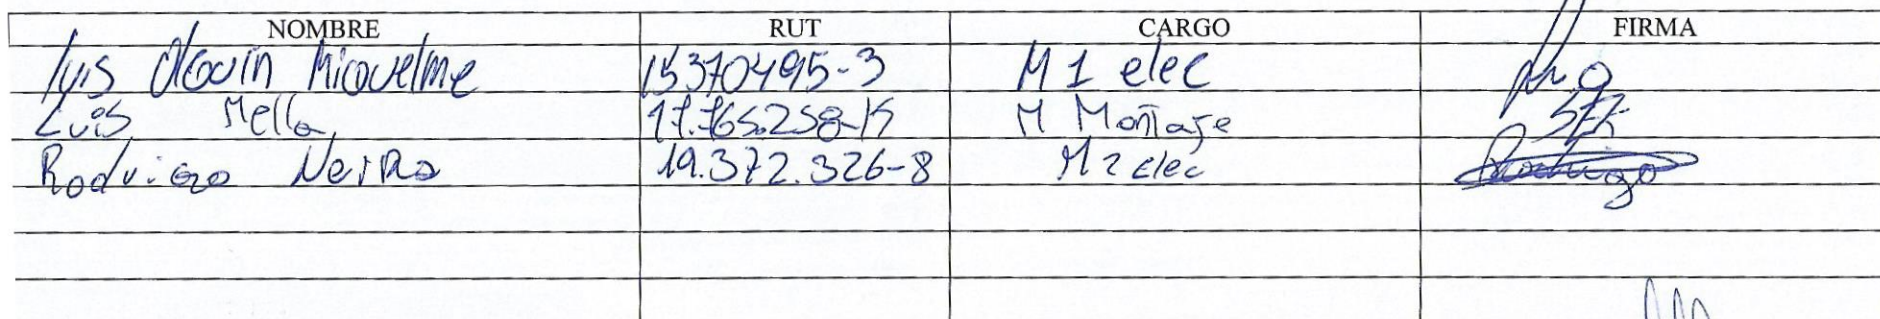 NOMBRE RUT CARGO FIRMA
Luis Olguin Riquelme 15370495-3 M 1 elec
Luis Mella 17.765.258-K M Montaje
Rodrigo Neira 19.372.326-8 M 2 elec Rodrigo